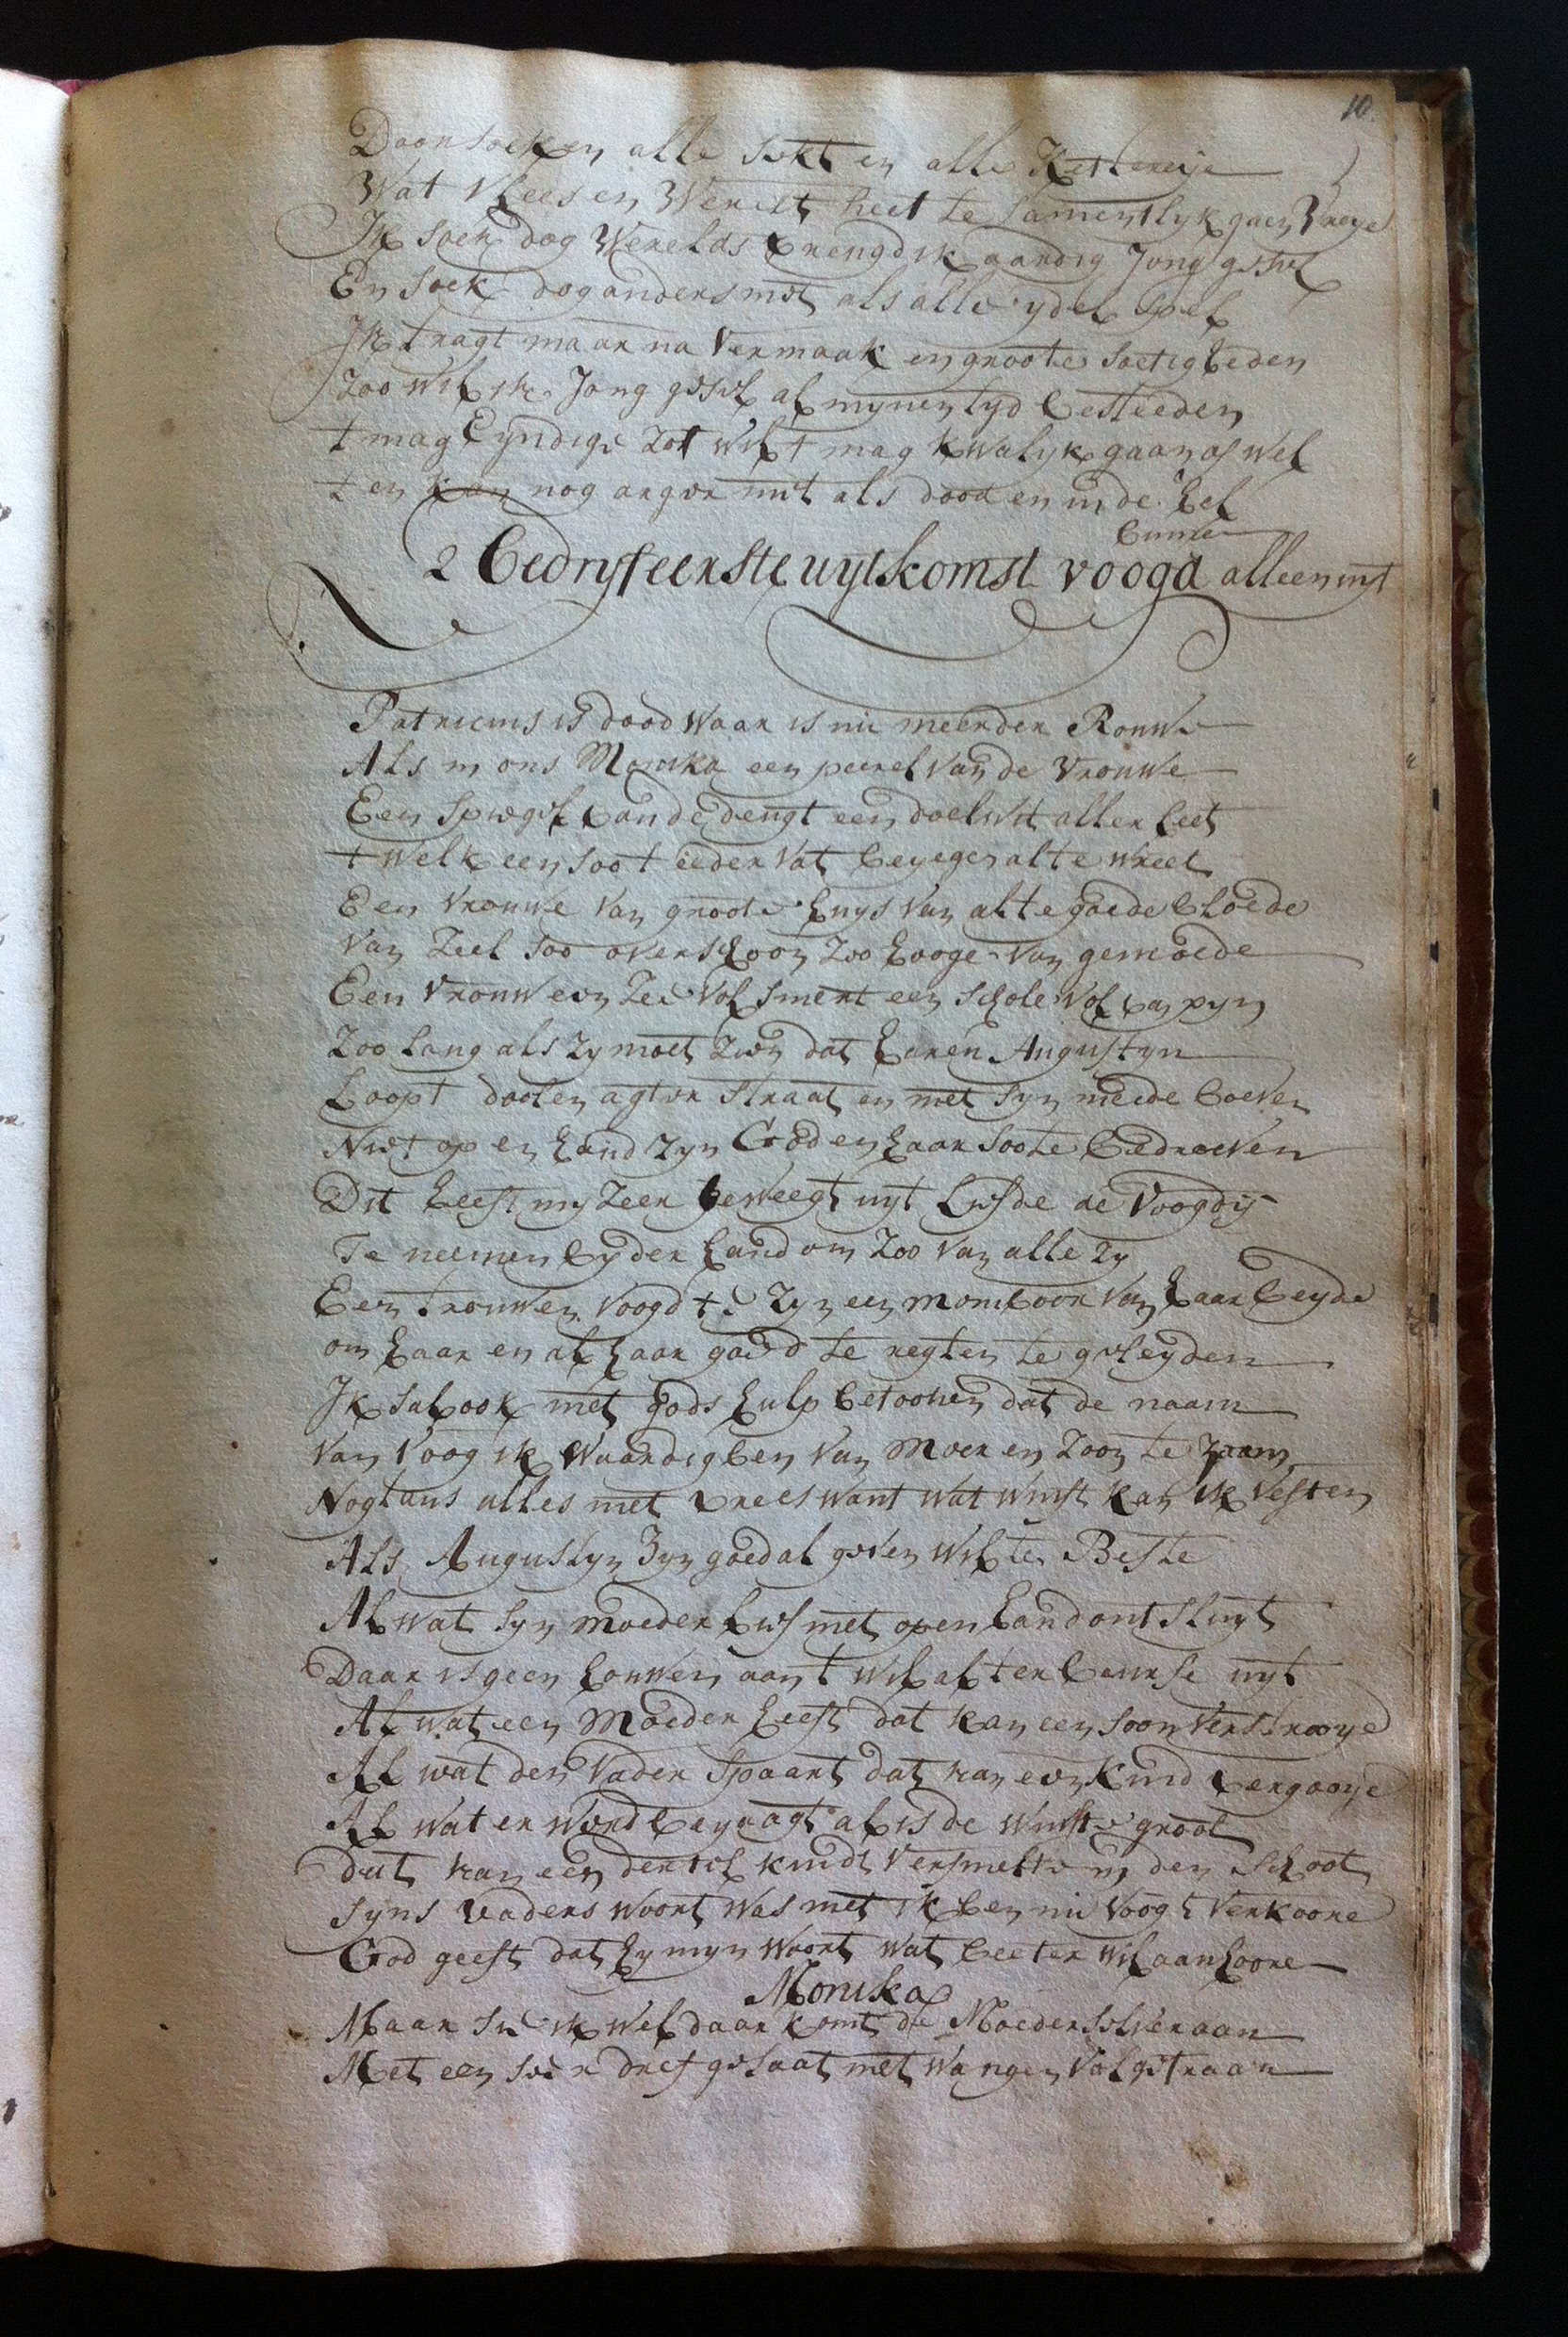 10
Doorsoeken alle sekt en alle Ketterije
Wat vlees en Werelt heet te samentlyk gaen vreye
Ik soek dog Werelds vreugd ik aardig Jong gesel
En soek dog anders niet als alle ydel spel
Ik tragt maar na Vermaak en groote soetigheden
Zoo wil ik Jong gesel al mynen tyd besteeden
t mag Eyndige zoo t wil t mag kwalyk gaan of wel
t en kan nog arger niet als dood en in de hel
2 bedryf eerste uytkomst voogd alleen uyt
binne
Patricius is dood waar is nu meerder Rouwe
Als in ons Monika een peerel van de vrouwe
Een spiegel van de deugt een doelwit aller leet
t welk een soo t ieder vat bejegen al te wreet
Een vrouwe van groote huys van al te goede bloede
van Zeel soo overschoon zoo hooge van gemoede
Een vrouw een Zee vol smert een schole vol van pyn
Zoo lang als zy moet zien dat haren Augustyn
Loopt doolen agter straat en met syn meede boeven
Niet op en houd zyn God en haar soo te bedroeven
Dit heeft my zeer beweegt uyt liefde de voogdij
Te neemen by der hand om zoo van alle zy
Een trouwen voogd te zyn een momboor van haar beyde
om haar en al haar goed te regten te geleyden
Ik sal ook met gods hulp betoonen dat de naam
van voog ik waardig ben van moer en zoon te zaam
Nogtans alles met vrees want wat winst kan ik vesten
Als Augustyn zyn goed al geven wil te Beste
Al wat syn moeder lief met open hand ontsluyt
Daar is geen houwen aan t wil al ter beurse uyt
Al wat een Moeder heeft dat kan een soon verstrooye
Al wat den vader spaart dat kan een kind vergooye
Al wat er word bejaagt al is de winste groot
dat kan een dertel kindt versmelte in den schoot
syns vaders woort was niet ik ben nu voogt verkoore
God geeft dat hy myn woort wat beeter wil aanhoore
Monika
Maar sie ik wel daar komt de Moeder selver aan
Met een seer droef gelaat met wangen vol getraan